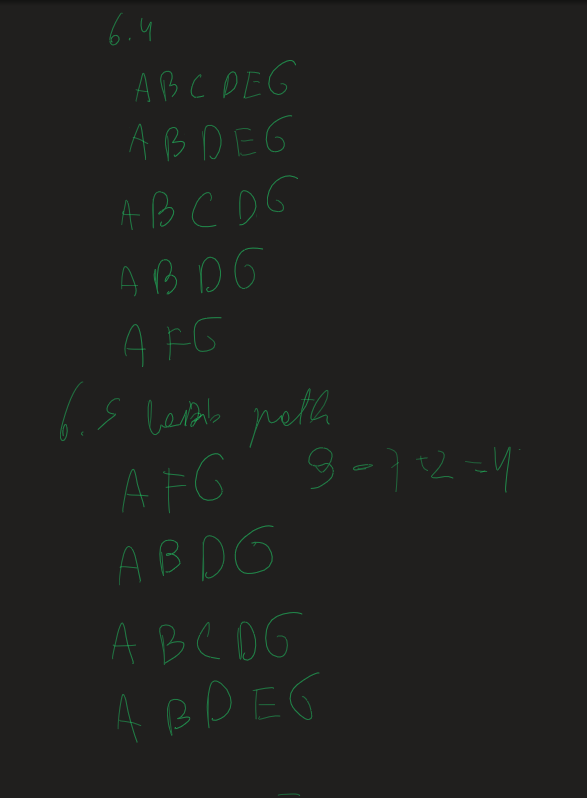 6.4
ABCDEG
ABDEG
ABCDG
ABDG
AFG
6.5 path
AFG 9-7+2=4
ABDG
ABCDG
ABDEG